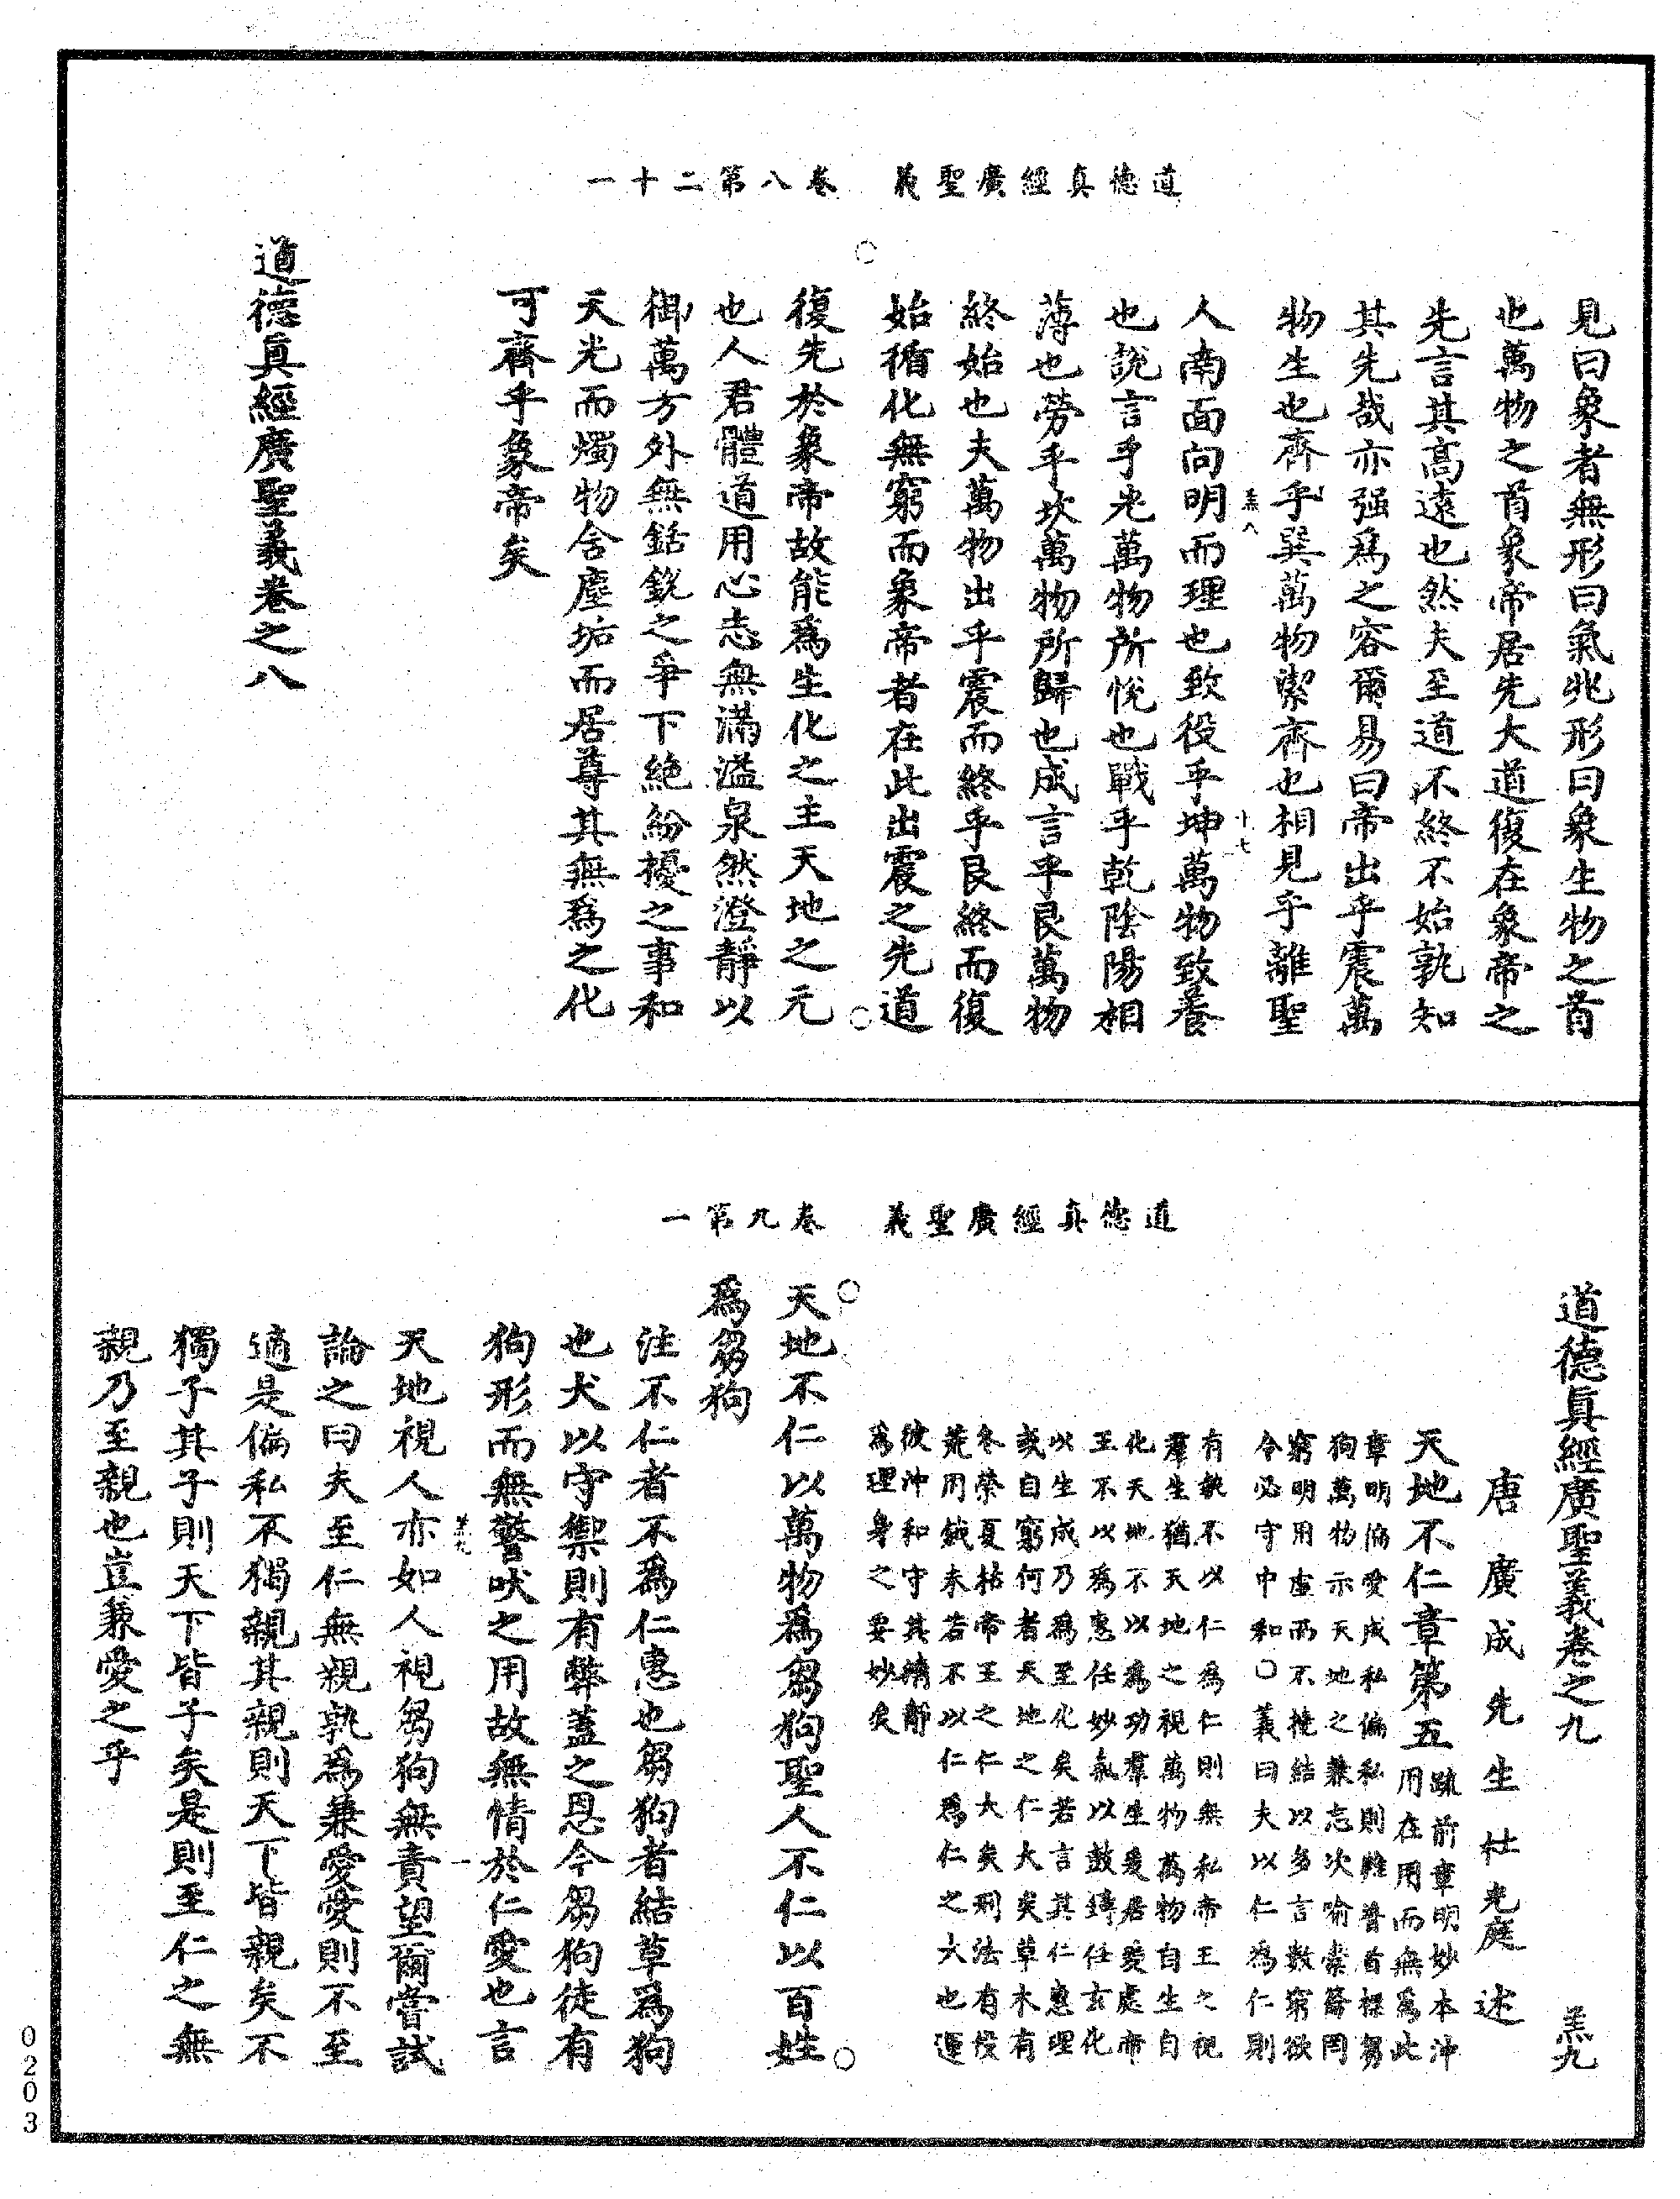 道德真經廣聖義　卷八第二十一
見曰象者無形曰氣兆形曰象生物之首
也萬物之首象帝居先大道復在象帝之
先言其高遠也然夫至道不終不始孰知
其先哉亦强爲之容爾易曰帝出乎震萬
物生也齊乎巽萬物潔齊也相見乎離聖
羔八　十七
人南面向明而理也致役乎坤萬物致養
也說言乎兊萬物所悅也戰乎乾陰陽相
薄也勞乎坎萬物所歸也成言乎艮萬物
終始也夫萬物出乎震而終乎艮終而復
始循化無窮而象帝者在此出震之先道
復先於象帝故能爲生化之主天地之元
也人君體道用心志無滿溢泉然澄靜以
御萬方外無銛銳之爭下絶紛擾之事和
天光而燭物含塵垢而居尊其無爲之化
可齊乎象帝矣
道德眞經廣聖義卷之八
道德真經廣聖義　卷九第一
道德眞經廣聖義卷之九　羔九
唐廣成先生杜光庭述
天地不仁章第五
疏前章明妙本沖
用在用而無爲此
章明偏愛成私偏私則難普首標芻
狗萬物示天地之兼忘次喻橐籥罔
窮明用虛而不撓結以多言數窮欲
令必守中和○義曰夫以仁爲仁則
有執不以仁爲仁則無私帝王之視
羣生猶天地之視萬物萬物自生自
化天地不以爲功羣生爰居爰處帝
王不以爲惠任妙氣以鼓鑄任玄化
以生成乃爲至化矣若言其仁惠理
或自窮何者天地之仁大矣草木有
冬榮夏枯帝王之仁大矣刑法有
用鉞未若不以仁爲仁之大也運
彼沖和守其清靜
爲理身之要妙矣
天地不仁以萬物爲芻狗聖人不仁以百姓
爲芻狗
注不仁者不爲仁惠也芻狗者結草爲狗
也犬以守禦則有弊蓋之恩今芻狗徒有
狗形而無警吠之用故無情於仁愛也言
羔九　一
天地視人亦如人視芻狗無責望爾嘗試
論之曰夫至仁無親孰爲兼愛愛則不至
適是偏私不獨親其親則天下皆親矣不
獨子其子則天下皆子矣是則至仁之無
親乃至親也豈兼愛之乎
0203